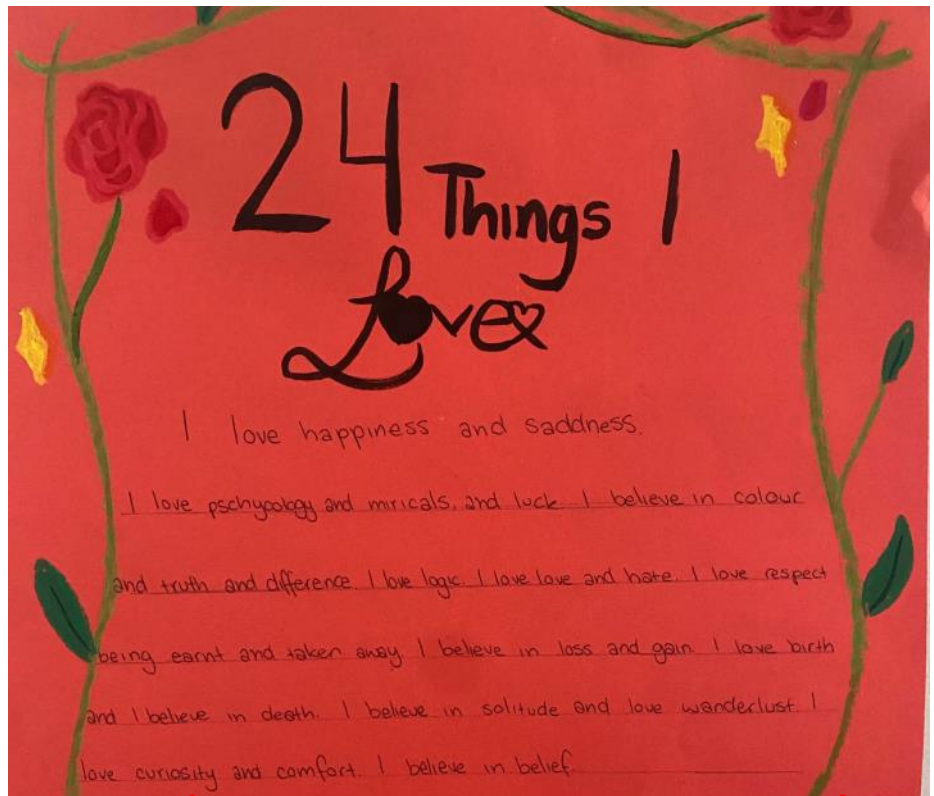 24 Things I
Love
I love happiness and saddness.
I love pschycology and miricals, and luck. I believe in colour
and truth and difference. I love logic. I love love and hate. I love respect
being earnt and taken away. I believe in loss and gain. I love birth
and I believe in death. I believe in solitude and love wanderlust. I
love curiosity and comfort. I believe in belief.